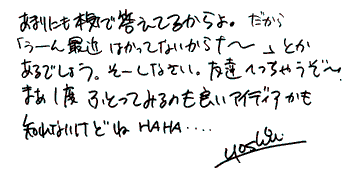 あまりにも本気で答えてるからよ。だから
「うーん最近はかってないからナ〜」とか
あるでしょう。そーしなさい。友達へっちゃうぞ〜
まあ1度ふとってみるのも良いアイディアかも
知れないけどね HAHA‥‥
Yoshiki